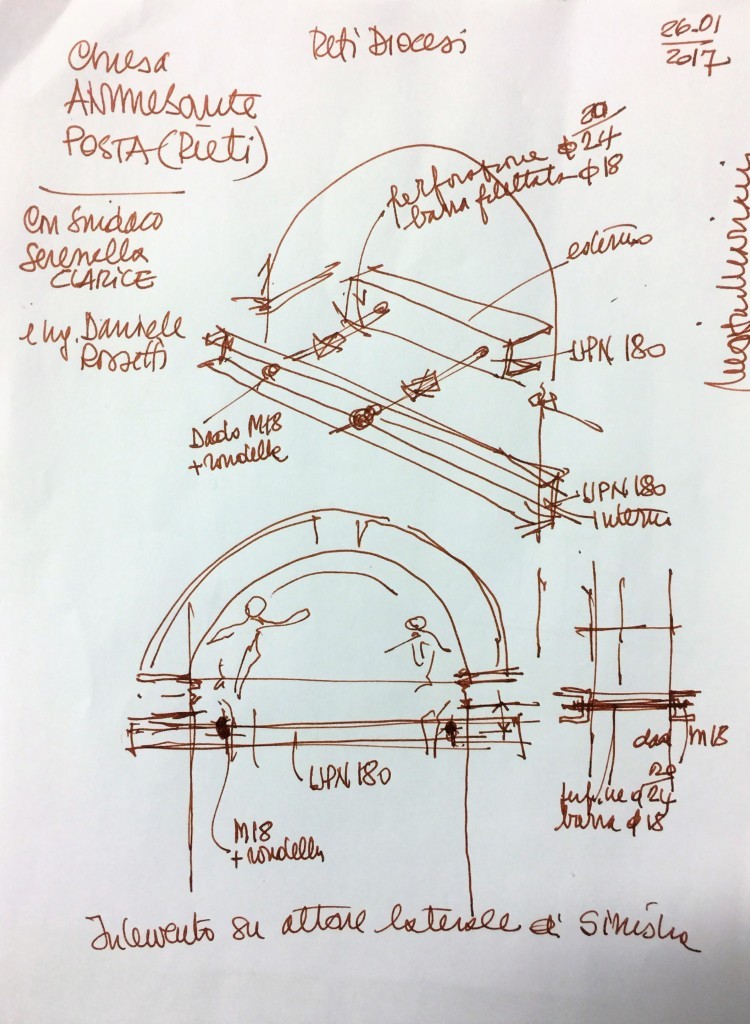 Rieti Diocesi
26.01
2017
Chiesa
POSTA (Rieti)
Con Sindaco
Serenella
CLARICE
e Ing. Daniele
Rossetti
20
perforazione ϕ 24
barra filettata ϕ 18
esterno
UPN 180
Dado M18
+ rondelle
UPN 180
interni
UPN 180
M18
+ rondella
dado M18
20
ϕ 24
barra ϕ 18
Intervento su altare laterale di sinistra